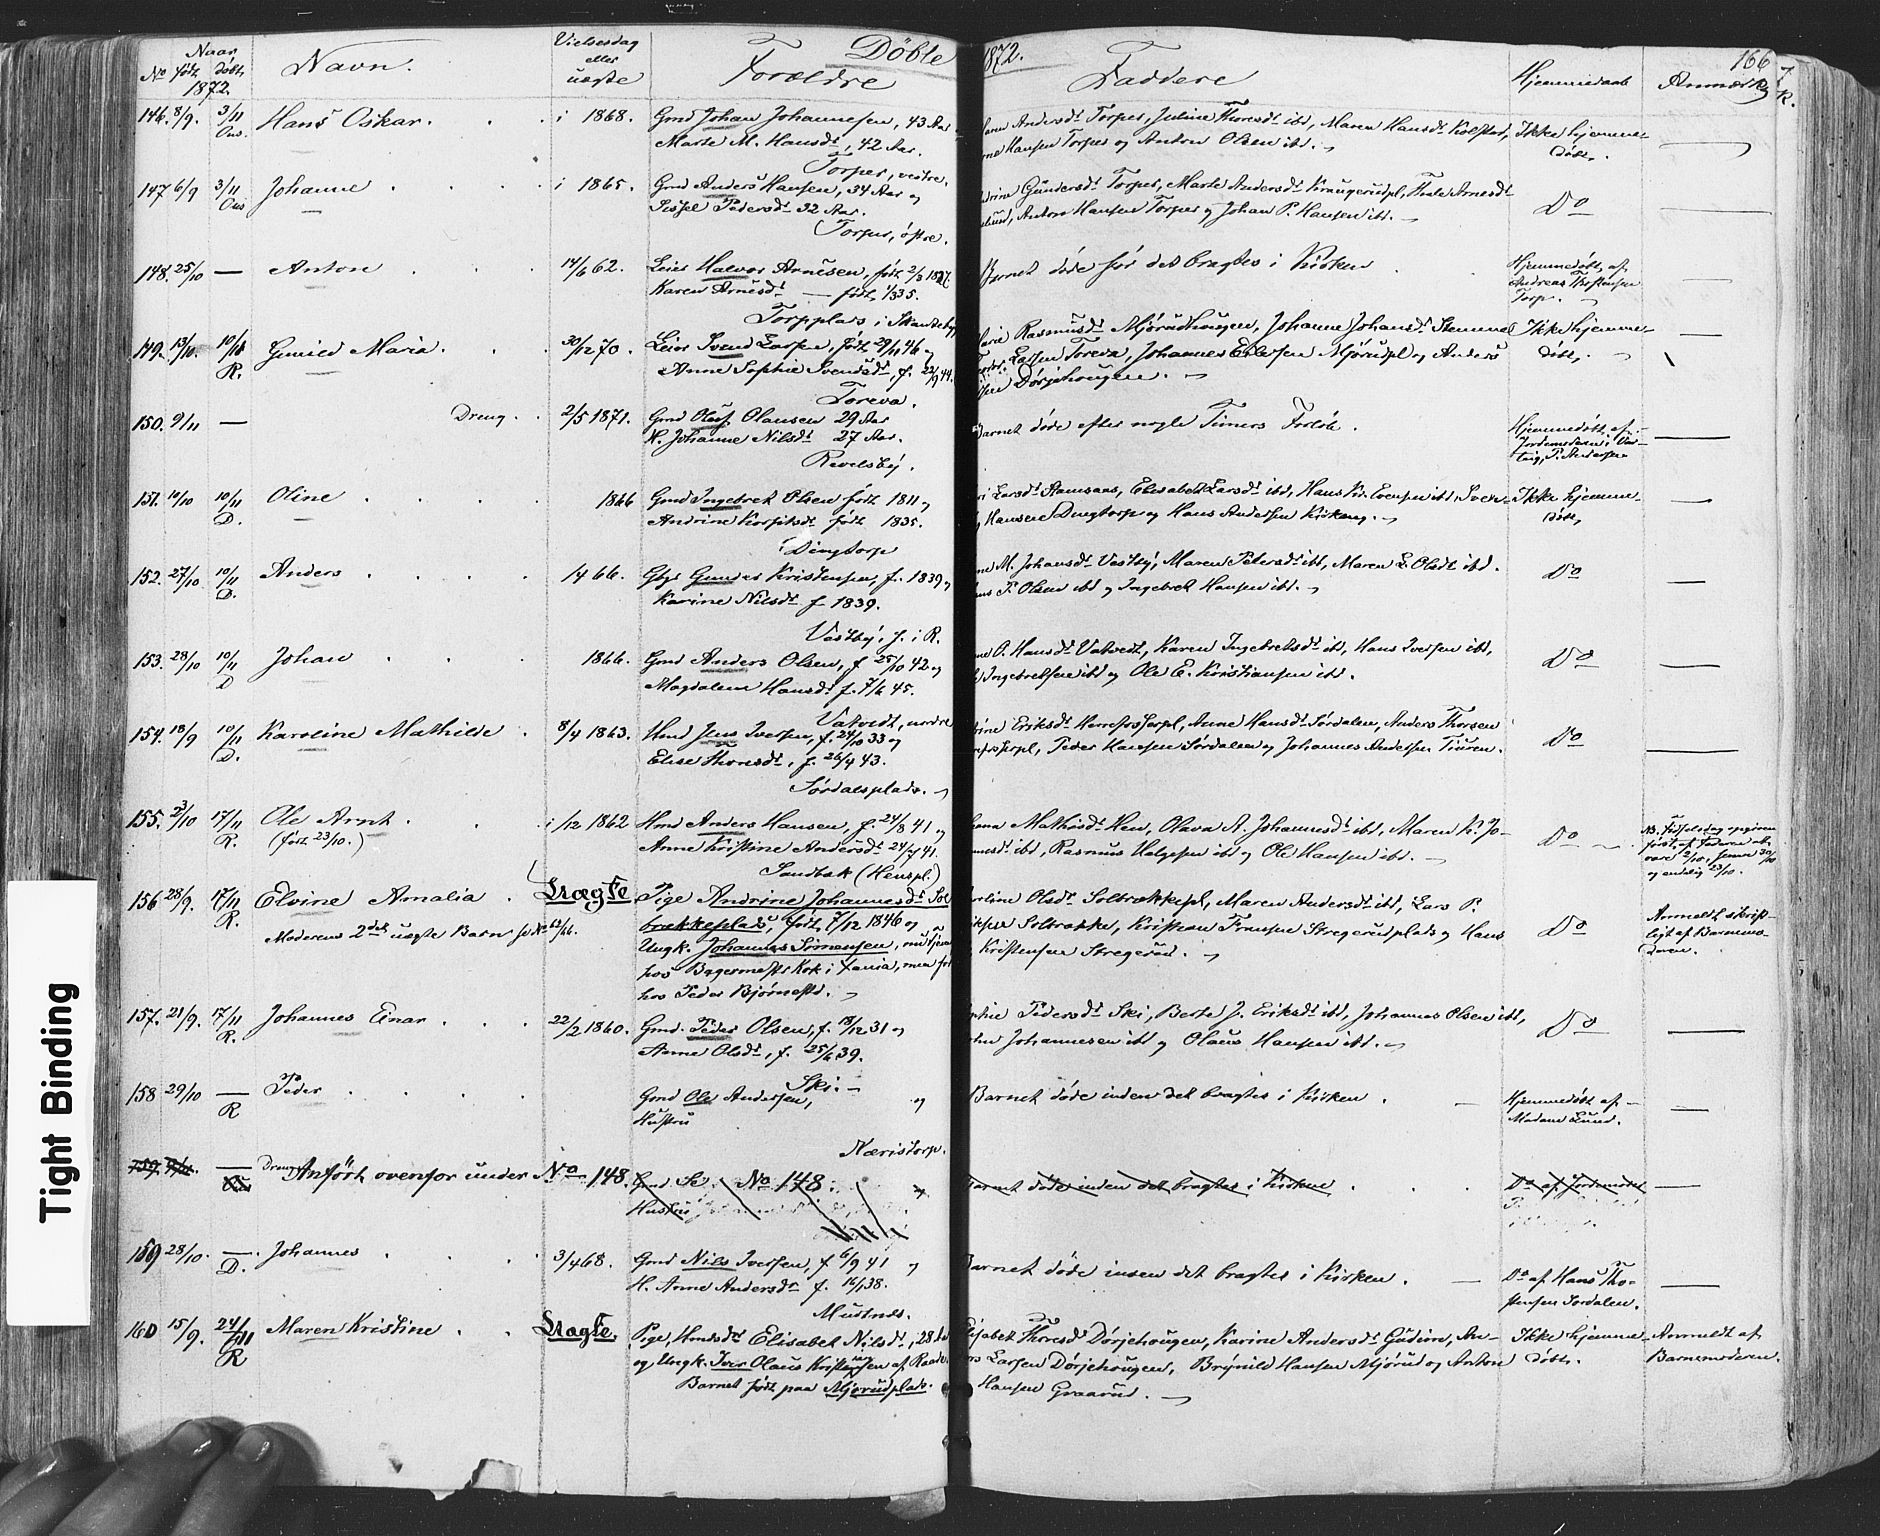 Døbte 1872.
166
No
Naar
født døbt
1872.
Navn.
Vielsesdag
eller
uægte
Forældre
Faddere
Hjemmedaab
Anmærkn
146. 8/9. 3/11 Hans Oskar. i 1868. Gmd Johan Johannesen, 43 Aar
Marte M. Hansdt, 42 Aar.
Torper, vestre.
Andersdt Torper, Juline Thoresdt ibd, Maren Hansdt Kolstad,
Hansen Torper og Anton Olsen ibd.
Ikke hjemme-
døbt.
147 6/9 3/11 Johanne i 1865. Gmd Anders Hansen, 34 Aar og
Sissel Pedersdt 32 Aar.
Torper, østre.
Gundersdt Torper, Marte Andersdt Kraugerudpl, Thale Arnesdt
Anton Hansen Torper og Johan P. Hansen ibd.
Do
148. 25/10 — Anton 14/6 62. Leier Halvor Arnesen, født 2/3 1827.
Karen Arnesdt — født 1/3 35.
Torpplads i Skandseby
Barnet døde før det bragtes i Kirken
Hjemmedøbt af
Andreas Thostensen
Torp.
149. 13/10. 10/11 R. Gunild Maria. 30/12 70. Leier Svend Larsen, født 29/11 46 og
Anne Sophie Svendsdt, f. 22/9 44.
Toreva.
Rasmusdt Mjørudhougen, Johanne Johansdt Stemmen
Larsen Toreva, Johannes Eilersen Mjørudpl og Anders
Dørjehougen.
Ikke hjemme-
døbt,
150. 9/11 — Dreng. 2/5 1871. Gmd Oluf Olausen 29 Aar
H. Johanne Nilsdt 27 Aar.
Revelsby.
Barnet døde efter nogle Timers Forløb.
Hjemmedøbt af
Jordemoderen i Var-
teig, P. Andersen
151. 10/10 10/11 D. Oline 1866 Gmd Ingebret Olsen født 1811 og
Andrine Korfitsdt født 1835.
Dingtorp
Larsdt Hamsaas, Elisabet Larsdt ibd, Hans Kr. Evensen ibd, Sven-
Hansen Dingtorp og Hans Andersen Kirkeng.
Ikke hjemme-
døbt,
152. 27/10 10/11 D. Anders 14 66. Gbr Gunder Kristensen, f. 1839 og
Karine Nilsdt f 1839.
Vestby, f. i R.
M. Johansdt Vestby, Maren Petersdt ibd, Maren L. Olsdt ibd.
P. Olsen ibd og Ingebret Hansen ibd.
Do
153. 28/10 10/11 D Johan 1866. Gmd Anders Olsen, f 25/10 42 og
Magdalene Hansdt f. 7/6 45.
Vatvedt, nordre
O. Hansdt Vatvedt, Karen Ingebretsdt ibd, Hans Iversen ibd,
Ingebretsen ibd og Ole E. Kristiansen ibd.
Do
154. 18/9 10/11 D. Karoline Mathilde 8/4 1863. Hmd Jens Iversen, f. 24/10 33 og
Elise Thoresdt, f. 26/4 43.
Sørdalsplads.
Eriksdt Herrefosserpl, Anne Hansdt Sørdalen, Anders Thorsen
Peder Hansen Sørdalen og Johannes Andersen Tiuren.
Do
155. 3/10 17/11 R. Ole Arnt. i /12 1862 Hmd Anders Hansen, f. 24/8 41 og
(født 23/10.)
Anne Kristine Andersdt 24/7 41.
Sandbæk (Henspl.)
Mathisdt Hen, Olava A. Johannesdt ibd, Maren K. Jo-
ibd, Rasmus Helgesen ibd og Ole Hansen ibd.
Do
NB. Fødselsdag opgiven
først af Faderen at
være 2/10, senere 30/10
og endelig 23/10.
156 28/9. 17/11 R. Elvine Amalia. Uægte Pige Andrine Johannesdt Sol
Moderens 2det uægte Barn se No 63/66.
brækkeplads, født 7/12 1846 og
Ungk. Johannes Simensen, nu tjen
hos Bagermester Kok i Xania, men før
hos Peder Bjørnstd.
Olsdt Solbrækkepl, Maren Andersdt ibd, Lars P.
Solbrække, Kristian Fransen Stregerudplads og Hans
Kristensen Stregerud.
Do
Anmeldt skrift-
ligt af Barnemo-
deren.
157. 21/9. 17/11 R. Johannes Einar. 22/2 1860. Gmd. Peder Olsen, f. 13/12 31 og
Anne Olsdt, f. 25/6 39.
Ski.
Pedersdt Ski, Berte J. Eriksdt ibd, Johannes Olsen ibd,
Johannesen ibd og Olaus Hansen ibd.
Do
158 29/10 — R Peder Gmd Ole Andersen, og
Hustru
Næristorp.
Barnet døde inden det bragtes i Kirken.
Hjemmedøbt af
Madam Lund.
159. — Dreng Anført ovenfor under No 148.
Gmd Se No 148.
Hustru
Barnet døde inden det bragtes i Kirken
Do af Jordemoder
159 28/10. — D. Johannes 3/4 68. Gmd Nils Iversen, f 6/9 41 og
H. Anne Andersdt f. 16/1 38.
Mustnes.
Barnet døde inden det bragtes i Kirken.
Do af Hans Tho-
stensen Sørdalen.
160 15/9. 24/11 R Maren Kristine Uægte. Pige, Hmdsdt Elisabet Nilsdt, 28
og Ungk. Iver Olaus Kristiansen af Raade.
Barnet født paa Mjørudplads.
Thoresdt Dørjehougen, Karine Andersdt Gudim, An-
Larsen Dørjehougen, Brynild Hansen Mjørud og Anton
Hansen Graarud.
Ikke hjemme-
døbt.
Anmeldt af
Barnemoderen.
Tight Binding